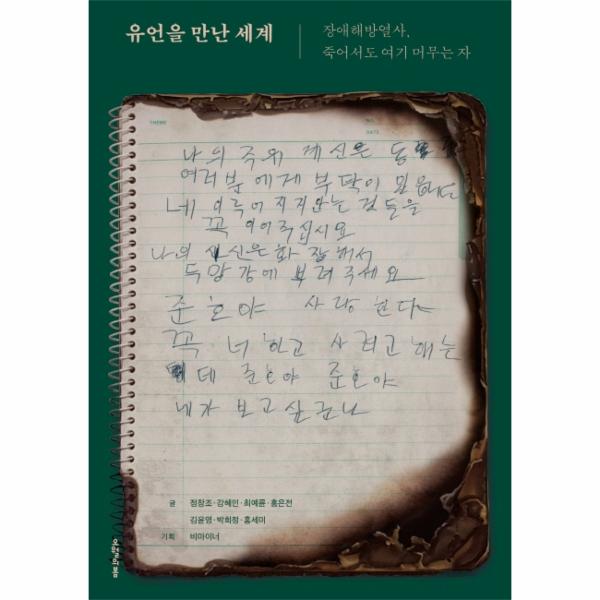 유언을 만난 세계
장애해방열사,
죽어서도 여기 머무는 자
THEME
NO.
DATE
나의 죽은 제 신은 동
여러분에게 부탁이 있읍니다
네 이루어지지 않는 것들을
꼭 이어주십시오
나의 시신은 화장해서
두망강에 뿌려주세요
준호야 사랑한다
꼭 너하고 사려고 해는
데 준호야 준호야
네가 보고 싶구나
글 정창조·강혜민·최예륜·홍은전
김윤영·박희정·홍세미
기획 비마이너
오월의봄